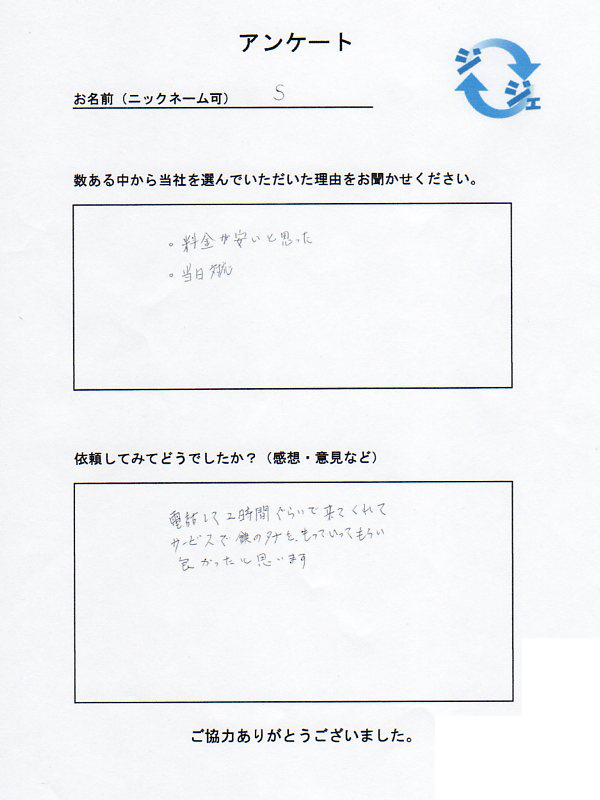 アンケート
ジジェ
お名前（ニックネーム可） S
数ある中から当社を選んでいただいた理由をお聞かせください。
。料金が安いと思った
。当日対応
依頼してみてどうでしたか？（感想・意見など）
電話して2時間ぐらいで来てくれて
サービスで鉄のタナを、もっていってもらい
良かったと思います
ご協力ありがとうございました。